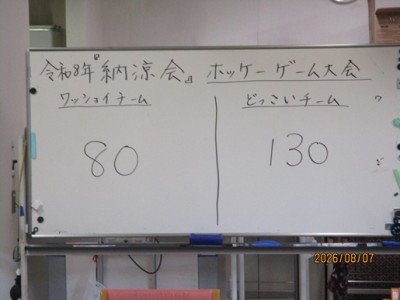 令和8年『納涼会』 ホッケーゲーム大会
ワッショイチーム
どっこいチーム
80
130
2026/08/07